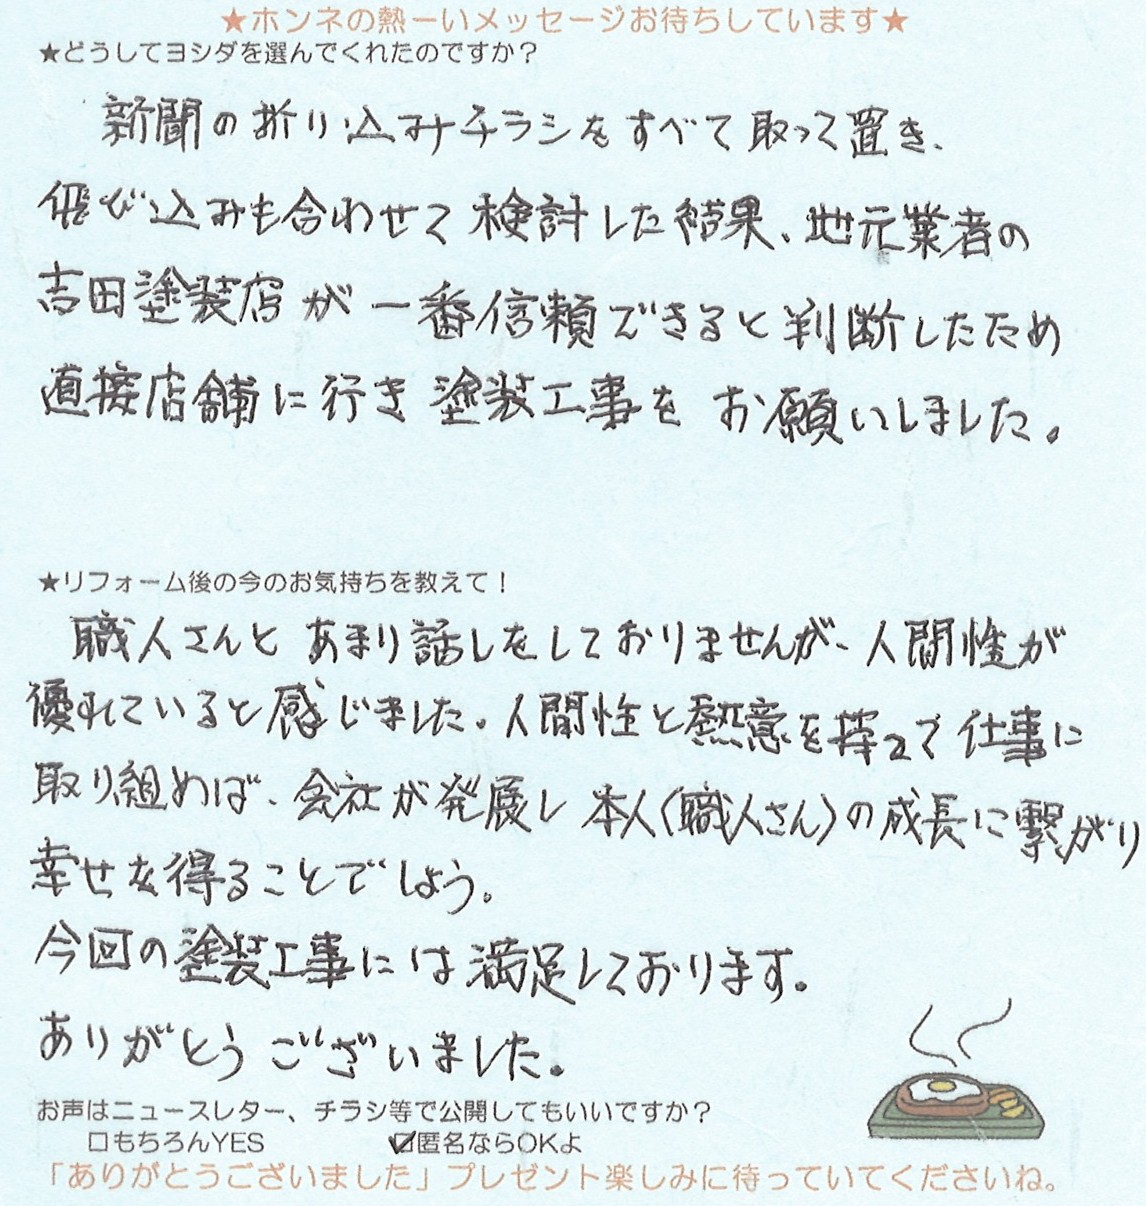 ★ホンネの熱ーいメッセージお待ちしています★
★どうしてヨシダを選んでくれたのですか？
新聞の折り込みチラシをすべて取って置き、
飛び込みも合わせて検討した結果、地元業者の
吉田塗装店が一番信頼できると判断したため
直接店舗に行き塗装工事をお願いしました。
★リフォーム後の今のお気持ちを教えて！
職人さんとあまり話しをしておりませんが、人間性が
優れていると感じました。人間性と熱意を持って仕事に
取り組めば、会社が発展し本人(職人さん)の成長に繋がり
幸せを得ることでしょう。
今回の塗装工事には満足しております。
ありがとうございました。
お声はニュースレター、チラシ等で公開してもいいですか？
□もちろんYES ☑匿名ならOKよ
「ありがとうございました」プレゼント楽しみに待っていてくださいね。